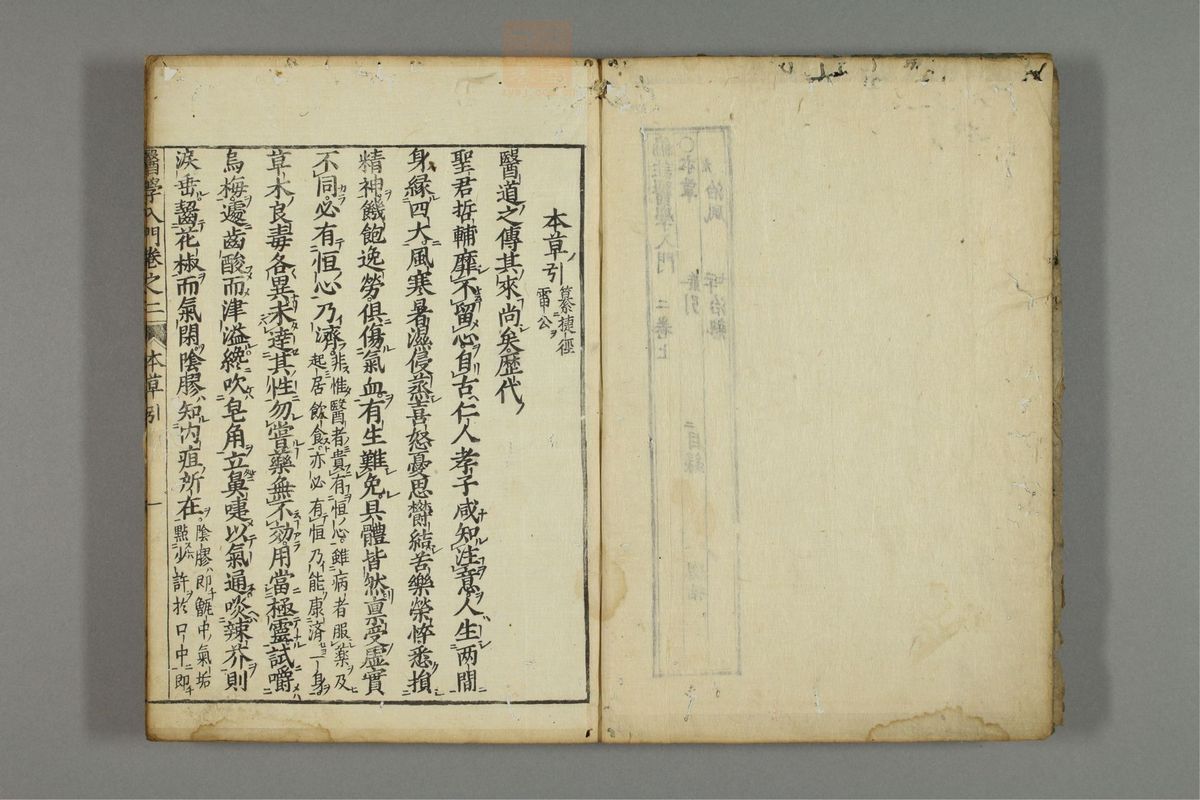 本草引 纂捷徑雷公
醫道之傳其來尚矣歷代
聖君哲輔靡不留心自古仁人孝子咸知注意人生两間
身緣四大風寒暑濕侵蒸喜怒憂思欝結苦樂榮悴悉損
精神饑飽逸勞俱傷氣血有生難免具體皆然禀受虛實
不同必有恒心乃濟
非惟醫者貴有恒心雖病者服藥及
起居飲食亦必有恒乃能康濟一身
草木良毒各異未達其性勿嘗藥無不効用當極靈試嚼
烏梅遽齒酸而津溢纔吹皂角立鼻嚏以氣通啖辣芥則
淚垂齧花椒而氣閉陰膠知内疽所在
陰膠即甑中氣垢
點少許於口中即
醫學入門卷之二 本草引 一